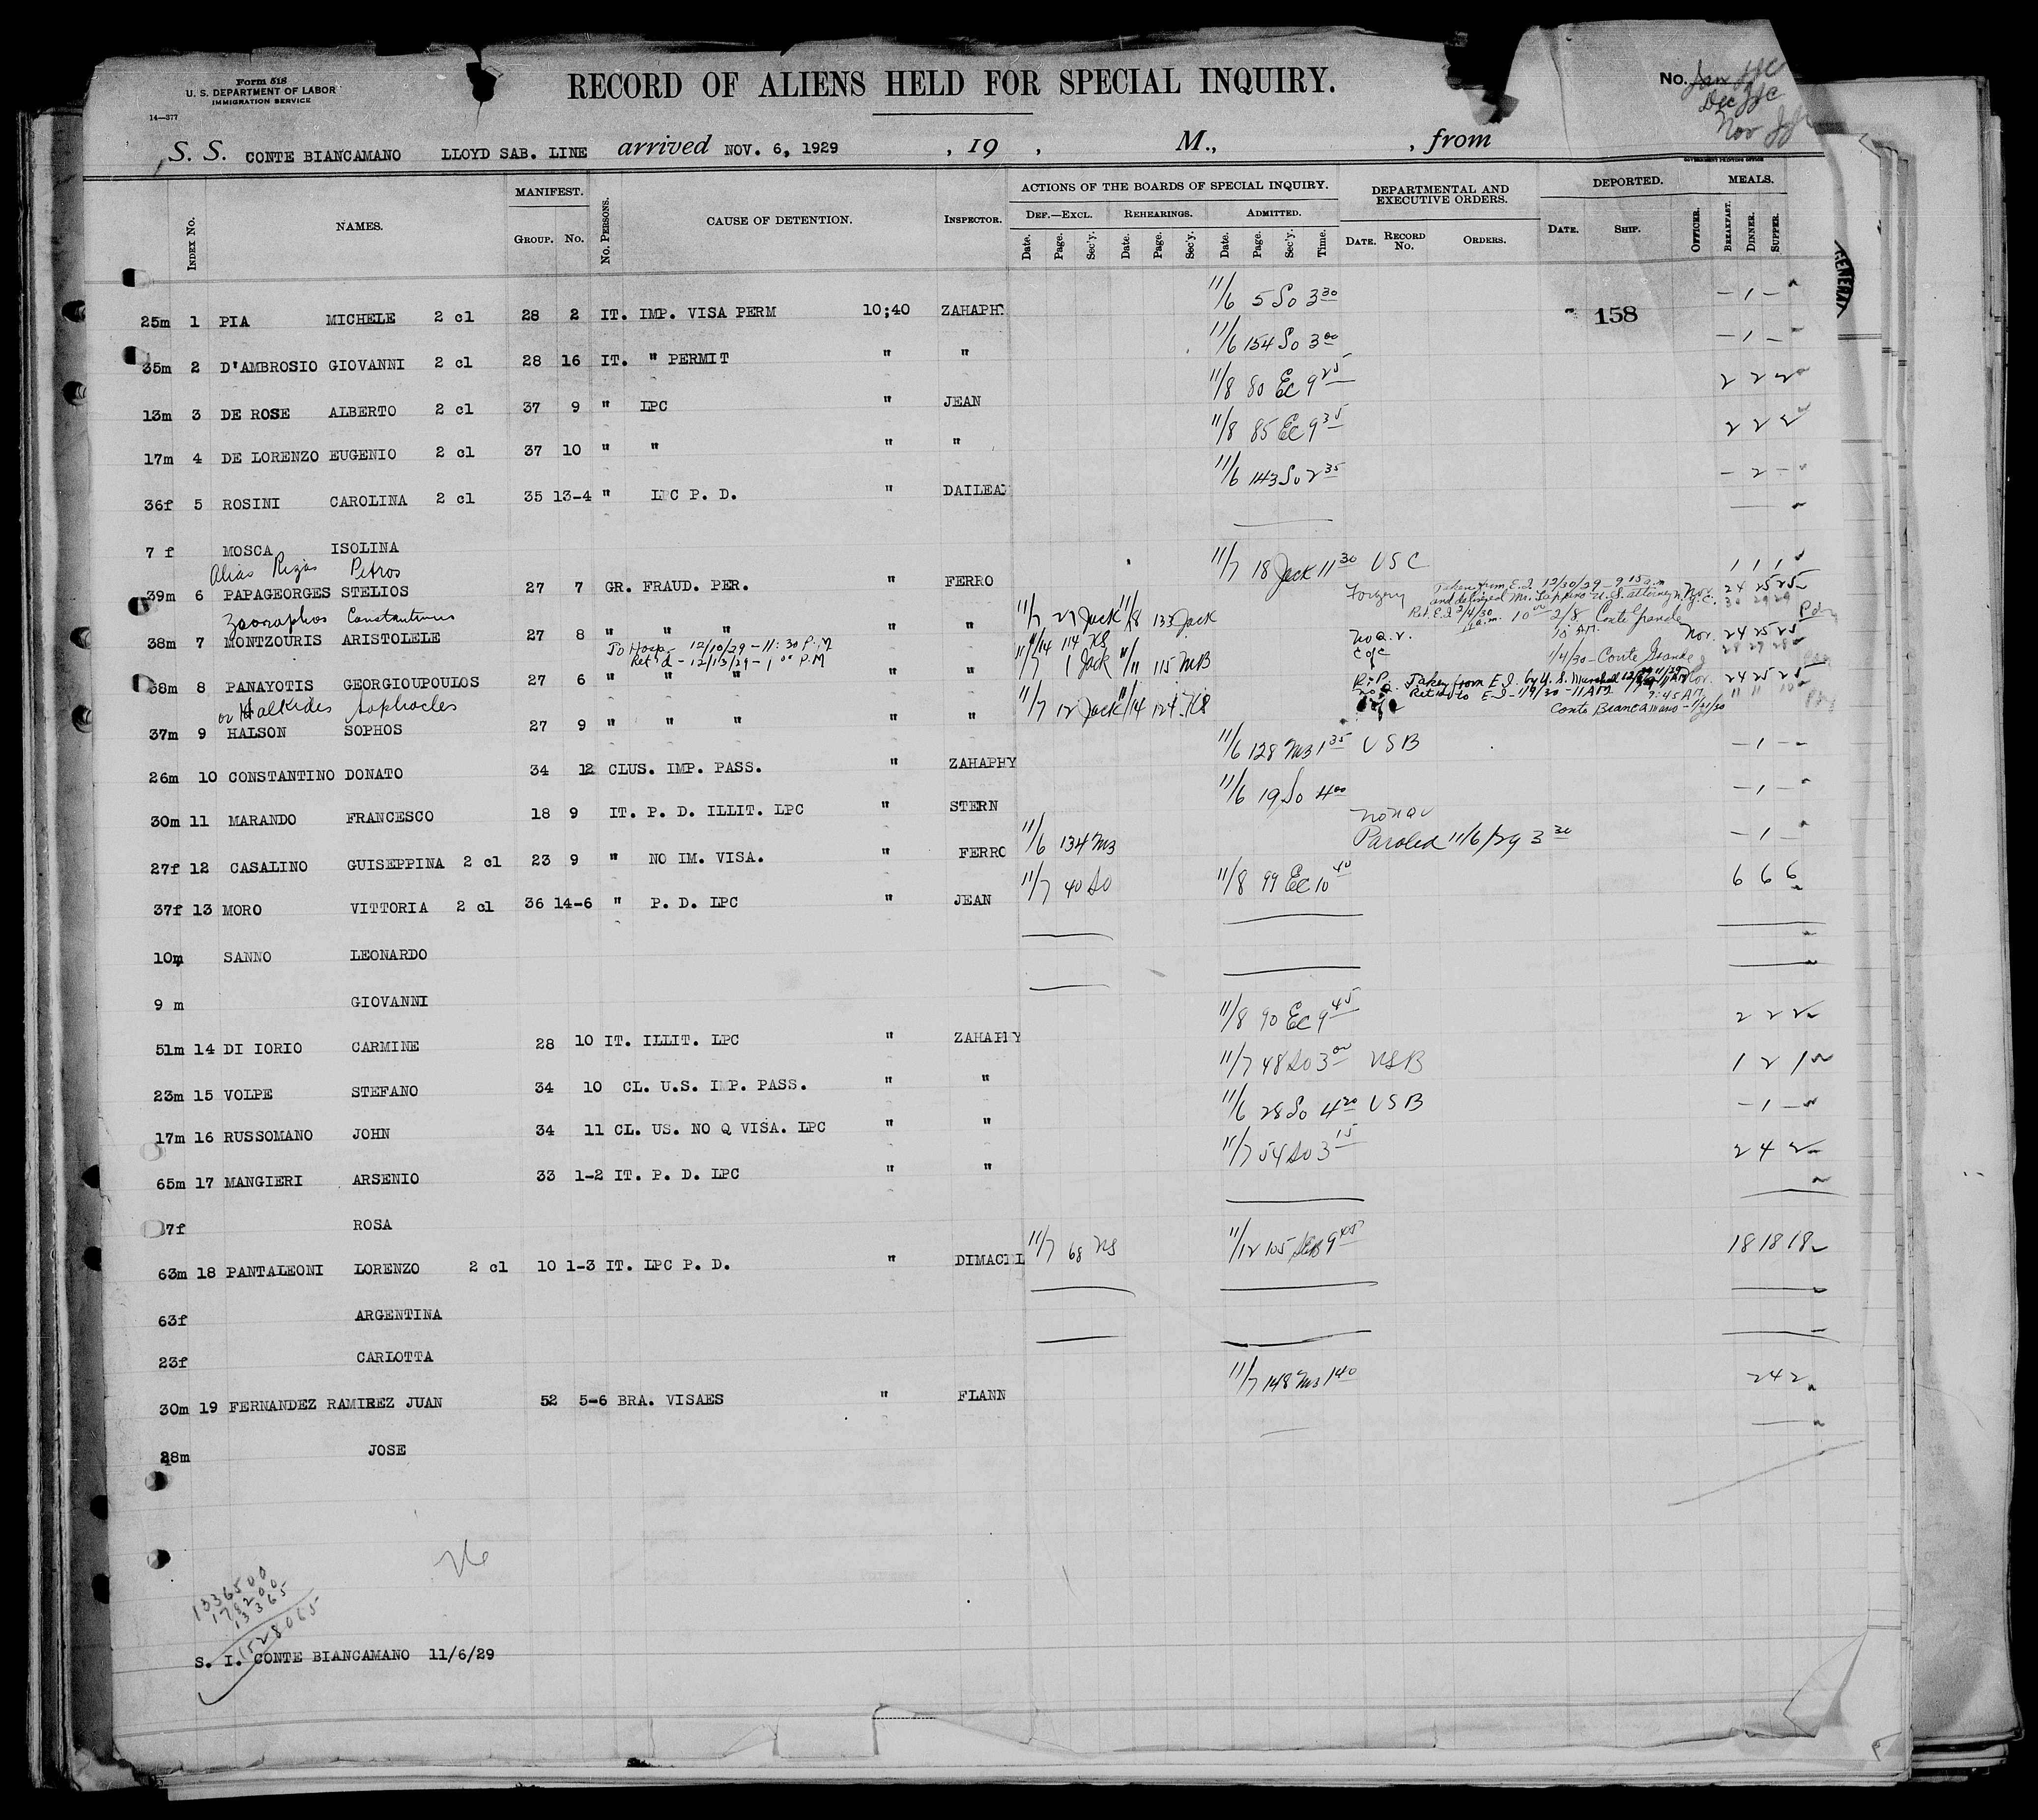 Form 518
U. S. DEPARTMENT OF LABOR
IMMIGRATION SERVICE
14—377
RECORD OF ALIENS HELD FOR SPECIAL INQUIRY.
No.
S. S. CONTE BIANCAMANO LLOYD SAB. LINE arrived NOV. 6, 1929 , 19 , M., , from
GOVERNMENT PRINTING OFFICE
INDEX No. NAMES. MANIFEST. GROUP. No. No. PERSONS. CAUSE OF DETENTION. INSPECTOR. ACTIONS OF THE BOARDS OF SPECIAL INQUIRY. DEPARTMENTAL AND EXECUTIVE ORDERS. DEPORTED. MEALS.
DEF.—EXCL. REHEARINGS. ADMITTED.
Date. Page. Sec'y. Date. Page. Sec'y. Date. Page. Sec'y. Time. DATE. RECORD No. ORDERS. DATE. SHIP. OFFICER. BREAKFAST. DINNER. SUPPER.
25m 1 PIA MICHELE 2 cl 28 2 IT. IMP. VISA PERM 10;40 ZAHAPH 11/6 5 So 3 30 158 – 1 –
35m 2 D'AMBROSIO GIOVANNI 2 cl 28 16 IT. " PERMIT " " 11/6 154 So 3 00 – 1 –
13m 3 DE ROSE ALBERTO 2 cl 37 9 " LPC " JEAN 11/8 80 Ec 9 25 2 2 2
17m 4 DE LORENZO EUGENIO 2 cl 37 10 " " " " 11/8 85 Ec 9 35 2 2 2
36f 5 ROSINI CAROLINA 2 cl 35 13-4 " LPC P. D. " DAILEA 11/6 143 So 2 35 – 2 –
7 f MOSCA ISOLINA
Alias Rizas Petros
39m 6 PAPAGEORGES STELIOS 27 7 GR. FRAUD. PER. " FERRO 11/7 18 Jack 11 30 USC 1 1 1
Zoographos Constantinus
38m 7 MONTZOURIS ARISTOLELE 27 8 " " " " " 11/7 27 Jack 11/8 133 Jack Forgery Taken from E.I. 12/30/29 – 9 15 a.m. and delivered Mr. U.S. attorney N.Y.C. Nov. 24 25 25
Ret. E.I. 2/4/30 10 00 2/8 Conte Grande 30 29 29
To Hosp. 12/10/29 – 11:30 P.M
Ret'd – 12/13/29 – 1 00 P.M
38m 8 PANAYOTIS GEORGIOUPOULOS 27 6 " " " " " 11/14 114 KS 11/7 1 Jack 11/11 115 MB 10 A.M. 1/4/30 – Conte Grande Nov. 24 25 25
28 29 28
or Halkides Sophocles
37m 9 HALSON SOPHOS 27 9 " " " " " 11/7 12 Jack 11/14 124 KS Taken from E.I. by U.S. Marshal Ret'd to E.I. – 1/9/30 – 11 AM Conte Biancamano – 1/21/30 Nov. 24 25 25
26m 10 CONSTANTINO DONATO 34 12 CLUS. IMP. PASS. " ZAHAPHY 11/6 128 M3 1 35 USB – 1 –
30m 11 MARANDO FRANCESCO 18 9 IT. P. D. ILLIT. LPC " STERN 11/6 19 So 4 00 – 1 –
27f 12 CASALINO GUISEPPINA 2 cl 23 9 " NO IM. VISA. " FERRO 11/6 134 M3 Paroled 11/6/29 3 30 – 1 –
37f 13 MORO VITTORIA 2 cl 36 14-6 " P. D. LPC " JEAN 11/7 40 So 11/8 99 Ec 10 40 6 6 6
10m SANNO LEONARDO
9 m GIOVANNI
51m 14 DI IORIO CARMINE 28 10 IT. ILLIT. LPC " ZAHAPHY 11/8 90 Ec 9 45 2 2 2
23m 15 VOLPE STEFANO 34 10 CL. U.S. IMP. PASS. " " 11/7 48 So 3 00 USB 1 2 1
17m 16 RUSSOMANO JOHN 34 11 CL. US. NO Q VISA. LPC " " 11/6 28 So 4 20 USB – 1 –
65m 17 MANGIERI ARSENIO 33 1-2 IT. P. D. LPC " " 11/7 54 So 3 15 2 4 2
7f ROSA
63m 18 PANTALEONI LORENZO 2 cl 10 1-3 IT. LPC P. D. " 11/7 68 11/12 105 9 40 18 18 18
63f ARGENTINA
23f CARLOTTA
30m 19 FERNANDEZ RAMIREZ JUAN 52 5-6 BRA. VISAES " FLANN 11/7 148 M3 1 40 2 4 2
28m JOSE
1336500
178200
13365
1528065
S. I. CONTE BIANCAMANO 11/6/29